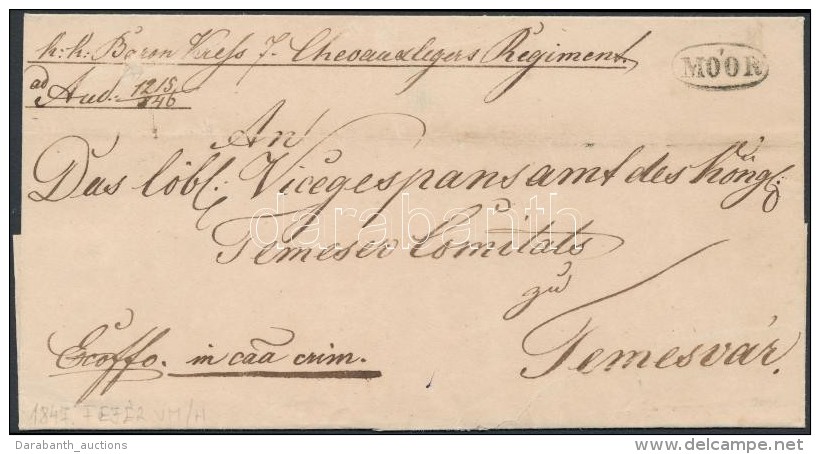 k: k: Baron Kress 7. Chevauxlegers Regiment.
MÓÓR
ad Aud: 1215/146
An
Das löbl: Vicegespansamt des Köngl:
darabanth
Temeser Comitats
zu
Temesvár.
Exoffo. in caâ crim.
1845 FEJÉR VM/H
Darabanth_auctions
www.delcampe.net